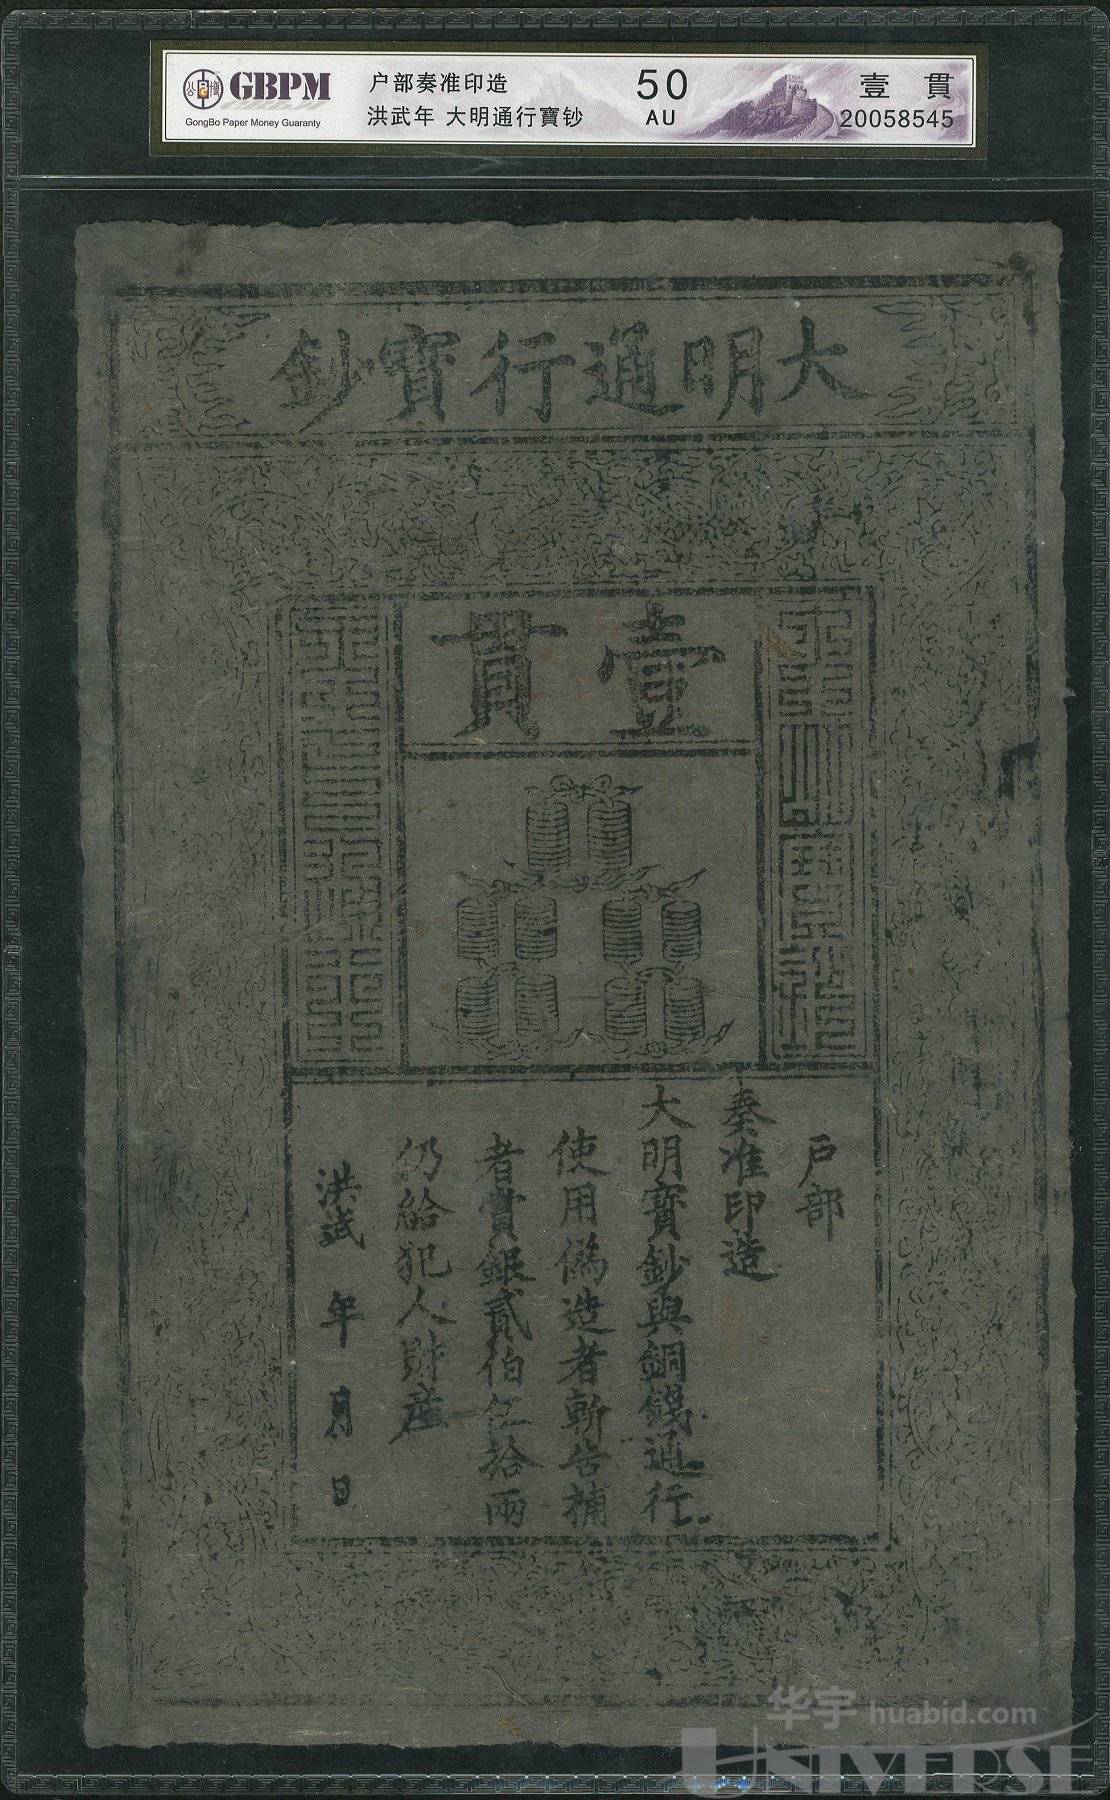 GBPM
GongBo Paper Money Guaranty
户部奏准印造
洪武年 大明通行寶鈔
50
AU
壹 貫
20058545
大明通行寶鈔
壹貫
大明寶鈔
天下通行
戶部
奏准印造
大明寶鈔與銅錢通行
使用僞造者斬告捕
者賞銀貳伯伍拾兩
仍給犯人財產
洪武 年 月 日
华宇 huabid.com
UNIVERSE